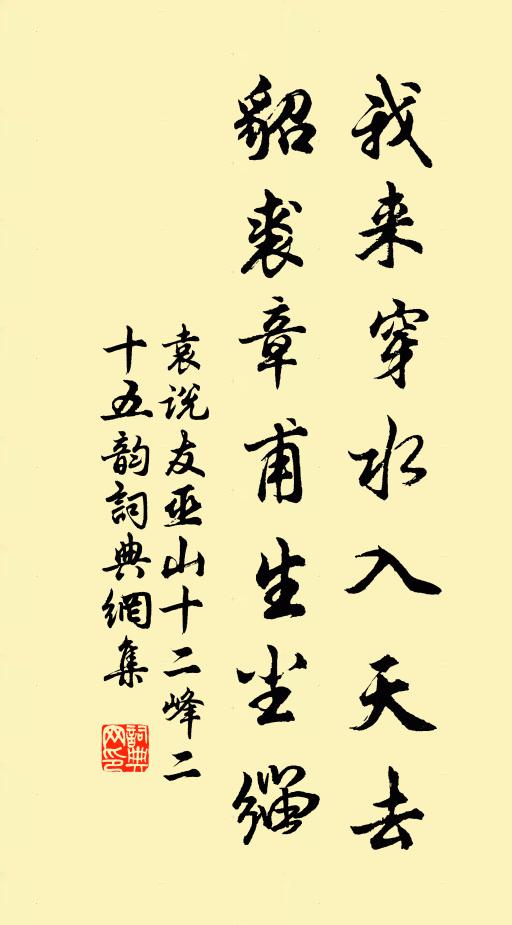 我来穿水入天去
貂裘章甫生尘缁
袁说友巫山十二峰二
十五韵詞典網集
詞典网印